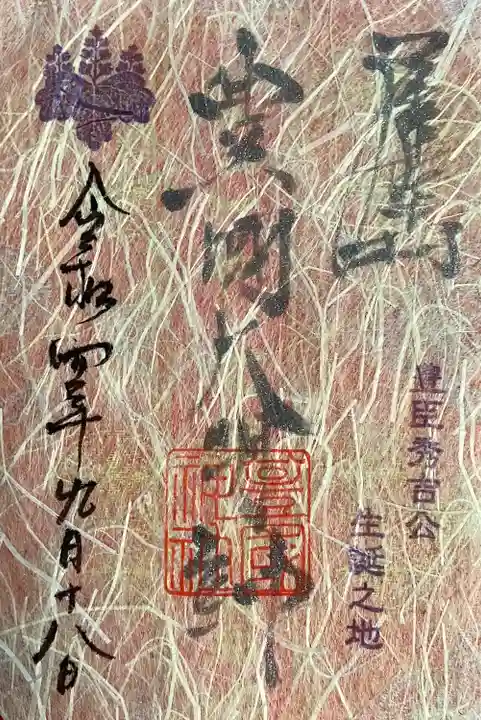 豊臣秀吉公
生誕之地
豊國大明神
豊國神社
令和四年九月十八日